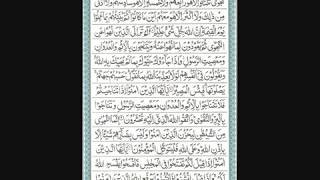 نَّجْوَىٰ ثَلَٰثَةٍ إِلَّا هُوَ رَابِعُهُمْ وَلَا خَمْسَةٍ إِلَّا هُوَ سَادِسُهُمْ وَلَآ أَدْنَىٰ
مِن ذَٰلِكَ وَلَآ أَكْثَرَ إِلَّا هُوَ مَعَهُمْ أَيْنَ مَا كَانُوا۟ ثُمَّ يُنَبِّئُهُم بِمَا عَمِلُوا۟
يَوْمَ ٱلْقِيَٰمَةِ إِنَّ ٱللَّهَ بِكُلِّ شَىْءٍ عَلِيمٌ أَلَمْ تَرَ إِلَى ٱلَّذِينَ نُهُوا۟ عَنِ
ٱلنَّجْوَىٰ ثُمَّ يَعُودُونَ لِمَا نُهُوا۟ عَنْهُ وَيَتَنَٰجَوْنَ بِٱلْإِثْمِ وَٱلْعُدْوَٰنِ
وَمَعْصِيَتِ ٱلرَّسُولِ وَإِذَا جَآءُوكَ حَيَّوْكَ بِمَا لَمْ يُحَيِّكَ بِهِ ٱللَّهُ
وَيَقُولُونَ فِىٓ أَنفُسِهِمْ لَوْلَا يُعَذِّبُنَا ٱللَّهُ بِمَا نَقُولُ حَسْبُهُمْ جَهَنَّمُ
يَصْلَوْنَهَا فَبِئْسَ ٱلْمَصِيرُ يَٰٓأَيُّهَا ٱلَّذِينَ ءَامَنُوٓا۟ إِذَا تَنَٰجَيْتُمْ
فَلَا تَتَنَٰجَوْا۟ بِٱلْإِثْمِ وَٱلْعُدْوَٰنِ وَمَعْصِيَتِ ٱلرَّسُولِ وَتَنَٰجَوْا۟
بِٱلْبِرِّ وَٱلتَّقْوَىٰ وَٱتَّقُوا۟ ٱللَّهَ ٱلَّذِىٓ إِلَيْهِ تُحْشَرُونَ إِنَّمَا ٱلنَّجْوَىٰ
مِنَ ٱلشَّيْطَٰنِ لِيَحْزُنَ ٱلَّذِينَ ءَامَنُوا۟ وَلَيْسَ بِضَآرِّهِمْ شَيْـًٔا إِلَّا
بِإِذْنِ ٱللَّهِ وَعَلَى ٱللَّهِ فَلْيَتَوَكَّلِ ٱلْمُؤْمِنُونَ يَٰٓأَيُّهَا ٱلَّذِينَ
ءَامَنُوٓا۟ إِذَا قِيلَ لَكُمْ تَفَسَّحُوا۟ فِى ٱلْمَجَٰلِسِ فَٱفْسَحُوا۟ يَفْسَحِ ٱللَّهُ